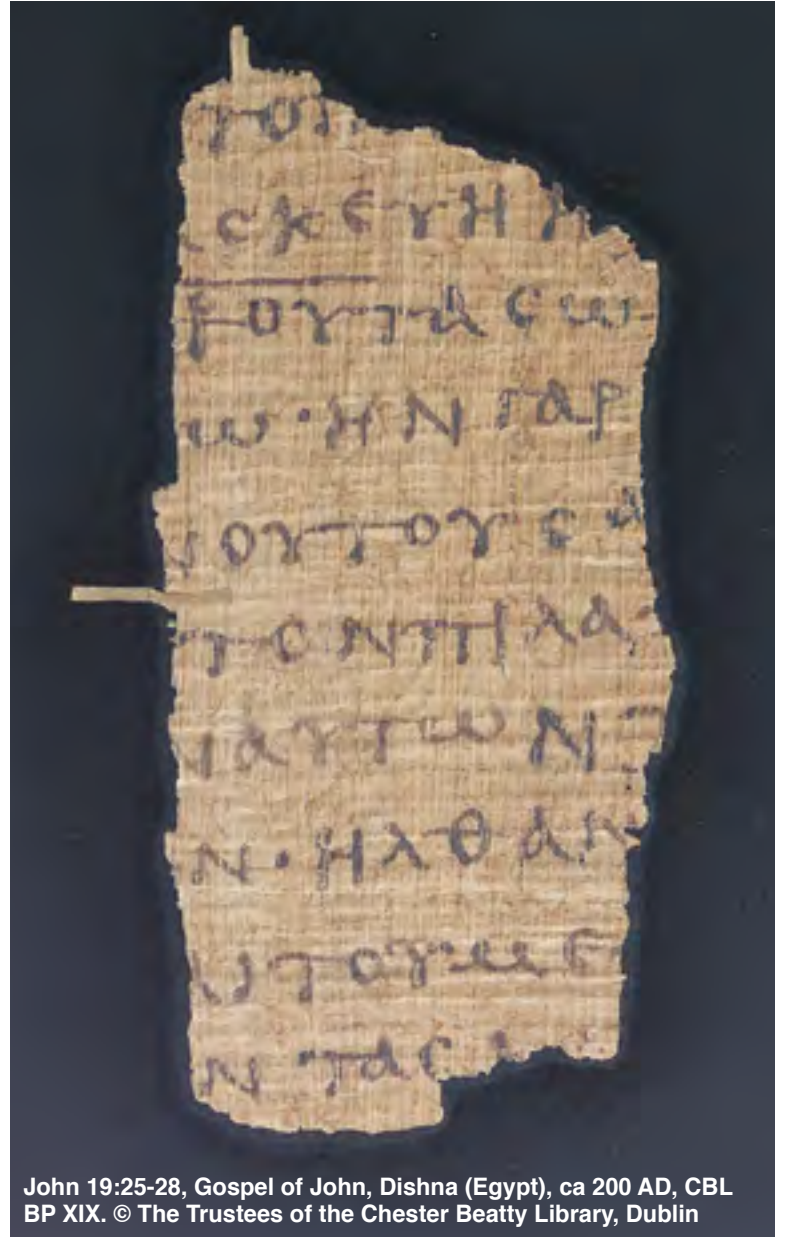 ΤΟΠ
ϹΚΕΥΗΗ
ΡΟΥΤΑϹΩ
Ω·ΗΝΓΑΡ
ΝΟΥΤΟΥϹΑ
ΤΟΝΠΙΛΑ
ΝΑΥΤΩΝΤ
Ν·ΗΛΘΑΝ
ΑΙΤΟΥΜΕ
Ν·ΤΑϹ
John 19:25-28, Gospel of John, Dishna (Egypt), ca 200 AD, CBL
BP XIX. © The Trustees of the Chester Beatty Library, Dublin